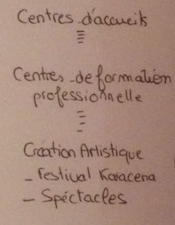 Centres d'accueils
Centres de formation
professionnelle
Création Artistique
- Festival Karacena
- Spéctacles